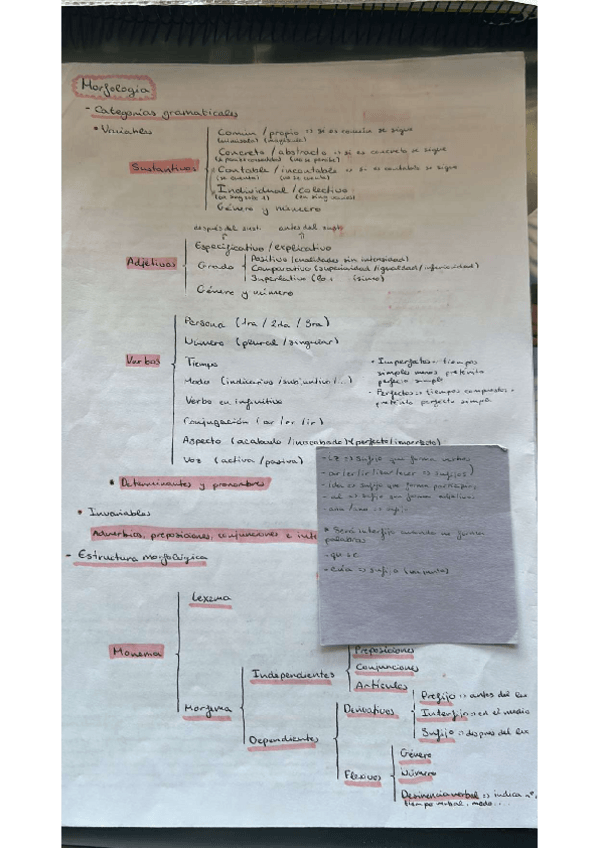 Morfología
- Categorías gramaticales
• Variables
Sustantivos
Común / propio => si es común se sigue
(minúscula) (mayúscula)
Concreto / abstracto => si es concreto se sigue
(no se percibe)
Contable / incontable => si es contable se sigue
(se cuenta) (no se cuenta)
Individual / colectivo
Género y número
después del sust. antes del sust.
Adjetivos
Especificativo / explicativo
Grado
Positivo (cualidades sin intensidad)
Comparativo (superioridad / igualdad / inferioridad)
Superlativo ísimo)
Género y número
Verbos
Persona (1ra / 2da / 3ra)
Número (plural / singular)
Tiempo
Modo (indicativo / subjuntivo /...)
Verbo en infinitivo
Conjugación (ar / er / ir)
Aspecto (acabado / inacabado) (perfecto / imperfecto)
Voz (activa / pasiva)
• Imperfectos = tiempos
simples menos pretérito
perfecto simple
- Perfectos => tiempos compuestos +
pretérito perfecto simple
• Determinantes y pronombres
• Invariables
Adverbios, preposiciones, conjunciones e inte
- iz => sufijo que forma verbos
- ar/er/ir => sufijos)
- ido => sufijo que forma participios
- al => sufijo que forma adjetivos
=> sufijo
* Será interfijo cuando no forme
palabras
- qu
=> sufijo
- Estructura morfológica
Monema
Lexema
Morfema
Independientes
Preposiciones
Conjunciones
Artículos
Dependientes
Derivativos
Prefijo => antes del lex
Interfijo => en el medio
Sufijo => después del lex
Flexivos
Género
Número
Desinencia verbal => indica nº,
tiempo verbal, modo....